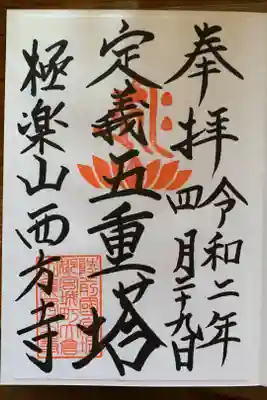 奉拝
令和二年
四月二十九日
定義五重塔
極楽山西方寺